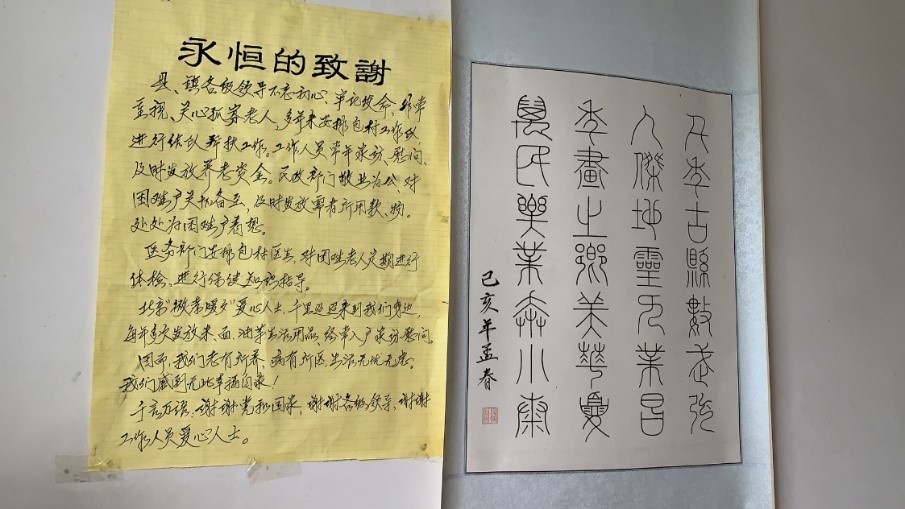 永恒的致謝
县、镇各级领导不忘初心、牢记使命,非常
重视、关心孤寡老人,多年来安排包村工作队
进行结队帮扶工作。工作人员常年来访、慰问、
及时发放养老资金。民政部门敬业治公,对
困难户关怀备至,及时发放军者所用款、物。
处处为困难户着想。
医务部门安排包村医生,对困难老人定期进行
体检、进行保健知识指导。
北京"微孝暖夕"爱心人士,千里迢迢来到我们身边,
每年多次发放米、面、油等生活用品,经常入户来访慰问。
因而,我们老有所养、病有所医、生活无忧无虑。
我们感到无比幸福自豪!
千言万语:谢谢党和国家、谢谢各级领导、谢谢
工作人员爱心人士。
千年古縣數武強
人傑地靈兄業昌
年畫之鄉美華夏
萬民樂業奔小康
己亥年孟春